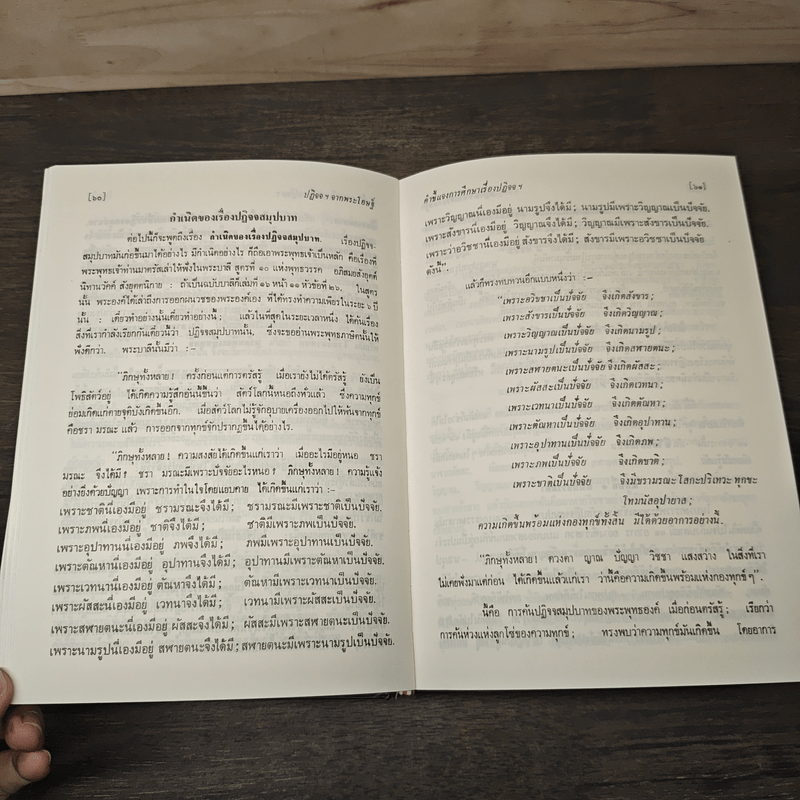 [๖๐] ปฏิจจ ฯ จากพระโอษฐ์
กำเนิดของเรื่องปฏิจจสมุปบาท
ต่อไปนี้ก็จะพูดถึงเรื่อง กำเนิดของเรื่องปฏิจจสมุปบาท. เรื่องปฏิจจ-
สมุปบาทมันก่อขึ้นมาได้อย่างไร มีกำเนิดอย่างไร ก็ถือเอาพระพุทธเจ้าเป็นหลัก คือเรื่องที่
พระพุทธเจ้าท่านมาตรัสเล่าให้ฟังในพระบาลี สูตรที่ ๑๐ แห่งพุทธวรรค อภิสมยสังยุตต์
นิทานวัคค์ สังยุตตนิกาย : ถ้าเป็นฉบับบาลีก็เล่มที่ ๑๖ หน้า ๑๑ หัวข้อที่ ๒๖. ในสูตร
นั้น พระองค์ได้เล่าถึงการออกผนวชของพระองค์เอง ที่ได้ทรงทำความเพียรในระยะ ๖ ปี
นั้น : เดี๋ยวทำอย่างนั้นเดี๋ยวทำอย่างนี้ ; แล้วในที่สุดในระยะเวลาหนึ่ง ได้ค้นเรื่อง
สิ่งที่เรากำลังเรียกกันเดี๋ยวนี้ว่า ปฏิจจสมุปบาทนั้น, ซึ่งจะขออ่านพระพุทธภาษิตนั้นให้
ฟังดีกว่า. พระบาลีนั้นมีว่า : –
"ภิกษุทั้งหลาย ! ครั้งก่อนแต่การตรัสรู้ เมื่อเรายังไม่ได้ตรัสรู้ ยังเป็น
โพธิสัตว์อยู่ ได้เกิดความรู้สึกอันนี้ขึ้นว่า สัตว์โลกนี้หนอถึงทั่วแล้ว ซึ่งความทุกข์
ย่อมเกิดแก่ตายจุติบังเกิดขึ้นอีก. เมื่อสัตว์โลกไม่รู้จักอุบายเครื่องออกไปให้พ้นจากทุกข์
คือชรา มรณะ แล้ว การออกจากทุกข์จักปรากฏขึ้นได้อย่างไร.
"ภิกษุทั้งหลาย ! ความสงสัยได้เกิดขึ้นแก่เราว่า เมื่ออะไรมีอยู่หนอ ชรา
มรณะ จึงได้มี ? ชรา มรณะมีเพราะปัจจัยอะไรหนอ ? ภิกษุทั้งหลาย ! ความรู้แจ้ง
อย่างยิ่งด้วยปัญญา เพราะการทำในใจโดยแยบคาย ได้เกิดขึ้นแก่เราว่า : –
เพราะชาตินี่เองมีอยู่ ชรามรณะจึงได้มี ; ชรามรณะมีเพราะชาติเป็นปัจจัย.
เพราะภพนี่เองมีอยู่ ชาติจึงได้มี ; ชาติมีเพราะภพเป็นปัจจัย.
เพราะอุปาทานนี่เองมีอยู่ ภพจึงได้มี ; ภพมีเพราะอุปาทานเป็นปัจจัย.
เพราะตัณหานี่เองมีอยู่ อุปาทานจึงได้มี ; อุปาทานมีเพราะตัณหาเป็นปัจจัย.
เพราะเวทนานี่เองมีอยู่ ตัณหาจึงได้มี ; ตัณหามีเพราะเวทนาเป็นปัจจัย.
เพราะผัสสะนี่เองมีอยู่ เวทนาจึงได้มี ; เวทนามีเพราะผัสสะเป็นปัจจัย.
เพราะสฬายตนะนี่เองมีอยู่ ผัสสะจึงได้มี ; ผัสสะมีเพราะสฬายตนะเป็นปัจจัย.
เพราะนามรูปนี่เองมีอยู่ สฬายตนะจึงได้มี ; สฬายตนะมีเพราะนามรูปเป็นปัจจัย.
คำชี้แจงการศึกษาเรื่องปฏิจจ ฯ [๖๑]
เพราะวิญญาณนี่เองมีอยู่ นามรูปจึงได้มี ; นามรูปมีเพราะวิญญาณเป็นปัจจัย.
เพราะสังขารนี่เองมีอยู่ วิญญาณจึงได้มี ; วิญญาณมีเพราะสังขารเป็นปัจจัย.
เพราะว่าอวิชชานี่เองมีอยู่ สังขารจึงได้มี ; สังขารมีเพราะอวิชชาเป็นปัจจัย
ดังนี้".
แล้วก็ทรงทบทวนอีกแบบหนึ่งว่า : –
"เพราะอวิชชาเป็นปัจจัย จึงเกิดสังขาร ;
เพราะสังขารเป็นปัจจัย จึงเกิดวิญญาณ ;
เพราะวิญญาณเป็นปัจจัย จึงเกิดนามรูป ;
เพราะนามรูปเป็นปัจจัย จึงเกิดสฬายตนะ ;
เพราะสฬายตนะเป็นปัจจัย จึงเกิดผัสสะ ;
เพราะผัสสะเป็นปัจจัย จึงเกิดเวทนา ;
เพราะเวทนาเป็นปัจจัย จึงเกิดตัณหา ;
เพราะตัณหาเป็นปัจจัย จึงเกิดอุปาทาน ;
เพราะอุปาทานเป็นปัจจัย จึงเกิดภพ ;
เพราะภพเป็นปัจจัย จึงเกิดชาติ ;
เพราะชาติเป็นปัจจัย จึงมีชรามรณะ โสกะปริเทวะ ทุกขะ
โทมนัสอุปายาส ;
ความเกิดขึ้นพร้อมแห่งกองทุกข์ทั้งสิ้น มีได้ด้วยอาการอย่างนี้.
"ภิกษุทั้งหลาย ! ดวงตา ญาณ ปัญญา วิชชา แสงสว่าง ในสิ่งที่เรา
ไม่เคยฟังมาแต่ก่อน ได้เกิดขึ้นแล้วแก่เรา ว่านี้คือความเกิดขึ้นพร้อมแห่งกองทุกข์ ๆ".
นี้คือ การค้นปฏิจจสมุปบาทของพระพุทธองค์ เมื่อก่อนตรัสรู้ ; เรียกว่า
การค้นห่วงแห่งลูกโซ่ของความทุกข์ ; ทรงพบว่าความทุกข์มันเกิดขึ้น โดยอาการ